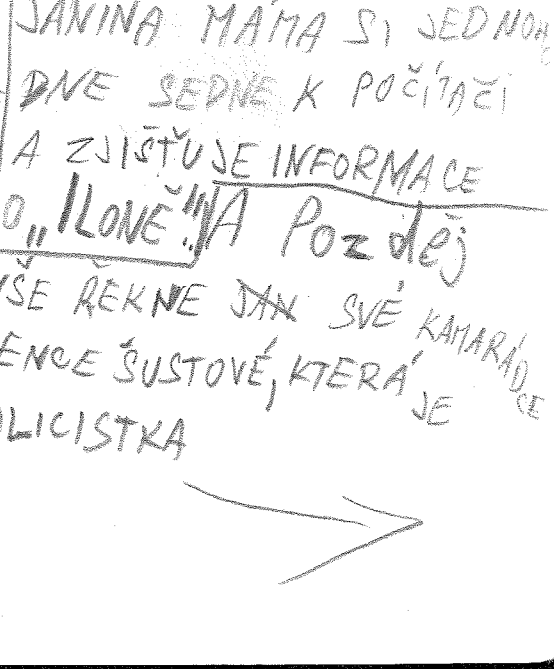 JANINA MÁMA SI JEDNOH
DNE SEDNE K POČÍTAČI
A ZJIŠŤUJE INFORMACE
O „ILONĚ!" A Pozděj
VŠE ŘEKNE JAN SVÉ KAMARÁDCE
ENCE ŠUSTOVÉ, KTERÁ JE
OLICISTKA